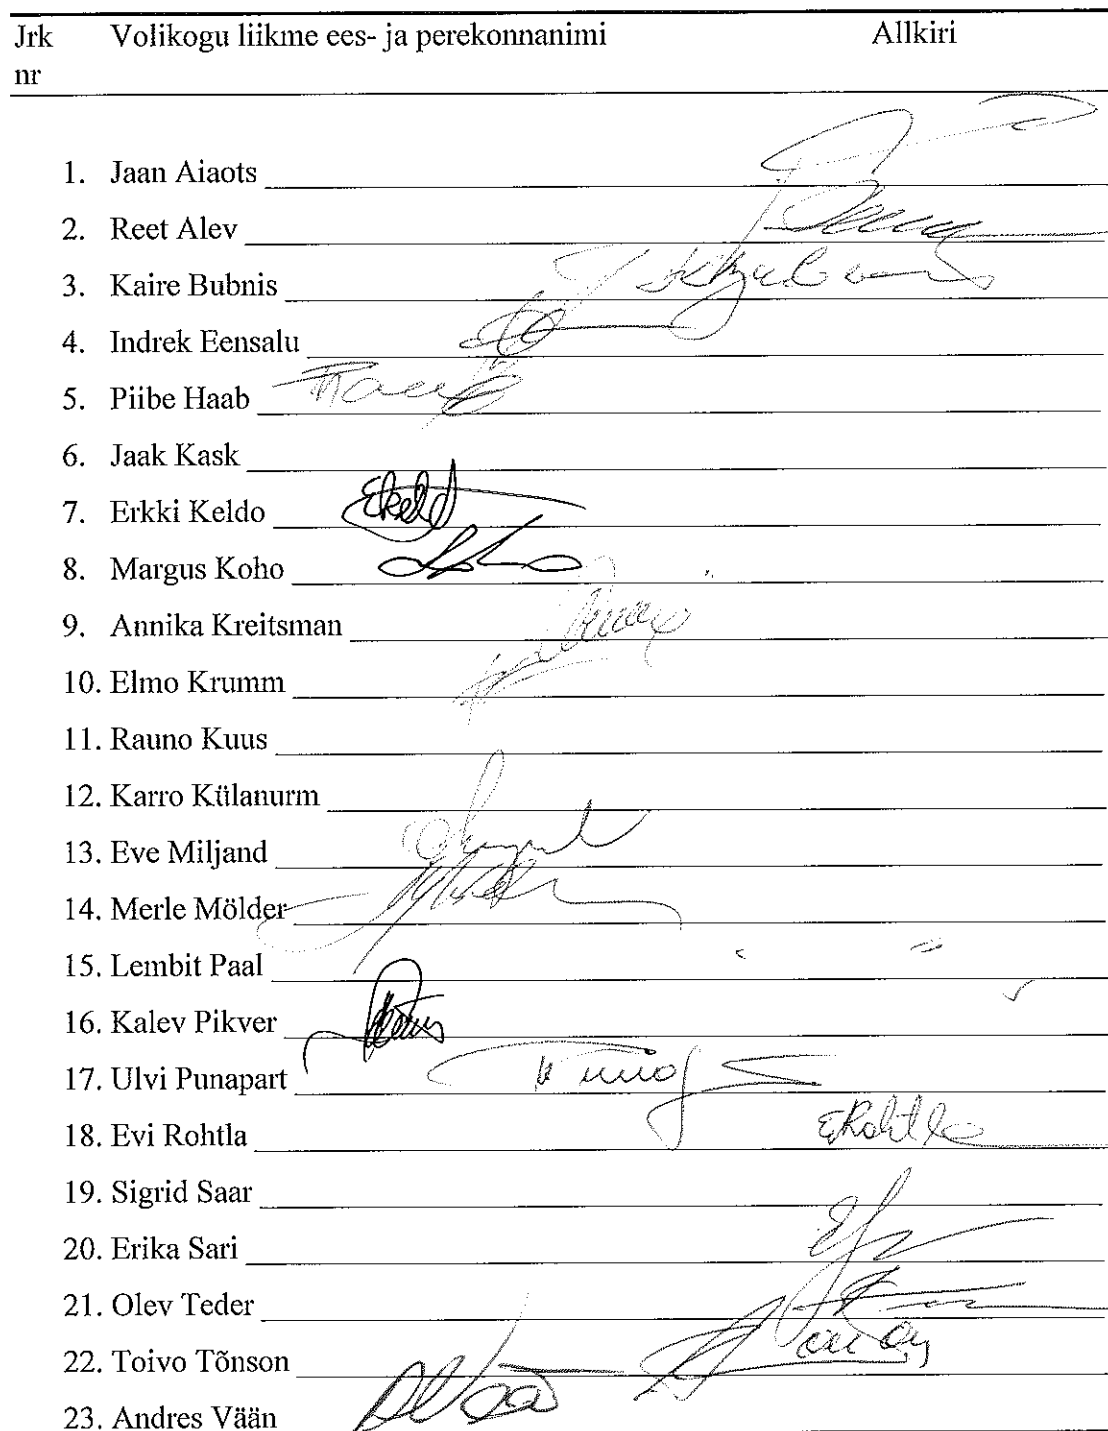 Jrk Volikogu liikme ees- ja perekonnanimi Allkiri
nr
1. Jaan Aiaots
2. Reet Alev
3. Kaire Bubnis
4. Indrek Eensalu
5. Piibe Haab
6. Jaak Kask
7. Erkki Keldo
8. Margus Koho
9. Annika Kreitsman
10. Elmo Krumm
11. Rauno Kuus
12. Karro Külanurm
13. Eve Miljand
14. Merle Mölder
15. Lembit Paal
16. Kalev Pikver
17. Ulvi Punapart
18. Evi Rohtla ERohtla
19. Sigrid Saar
20. Erika Sari
21. Olev Teder
22. Toivo Tõnson
23. Andres Vään